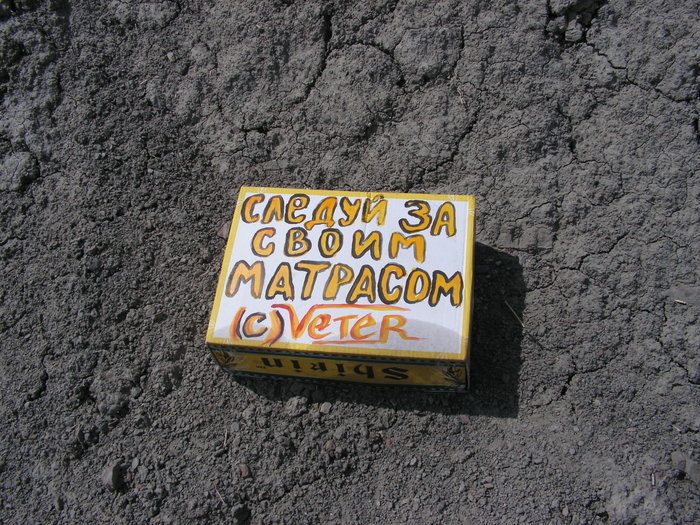 СЛЕДУЙ ЗА
СВОИМ
МАТРАСОМ
(C) VETER
Shirin